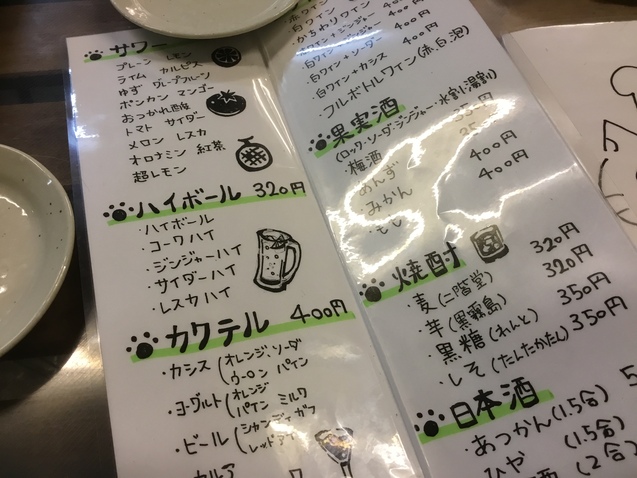 サワー
プレーン レモン
ライム カルピス
ゆず グレープフルーツ
ポンカン マンゴー
おつかれ酢
トマト サイダー
メロン レスカ
オロナミン 紅茶
超レモン
ハイボール 320円
・ハイボール
・コークハイ
・ジンジャーハイ
・サイダーハイ
・レスカハイ
カクテル 400円
・カシス(オレンジ・ソーダ
ウーロン パイン
・ヨーグルト(オレンジ
パイン ミルク
・ビール(シャンディガフ
レッドアイ
・カルア
赤ワイン
・白ワイン 400円
・かちわりワイン
・白ワイン+ジンジャー 400円
・白ワイン+ソーダ 400円
・白ワイン+カシス 400円
・フルボトルワイン(赤、白、泡)
果実酒
(ロック・ソーダ・ジンジャー・水割・湯割)
・梅酒
・あんず 400円
・みかん 400円
・もも
焼酎
・麦(二階堂) 320円
・芋(黒霧島) 320円
・黒糖(れんと) 350円
・しそ(たんたかたん) 350円
日本酒
・あつかん(1.5合)
・ひや (1.5合)
酒 (2合)